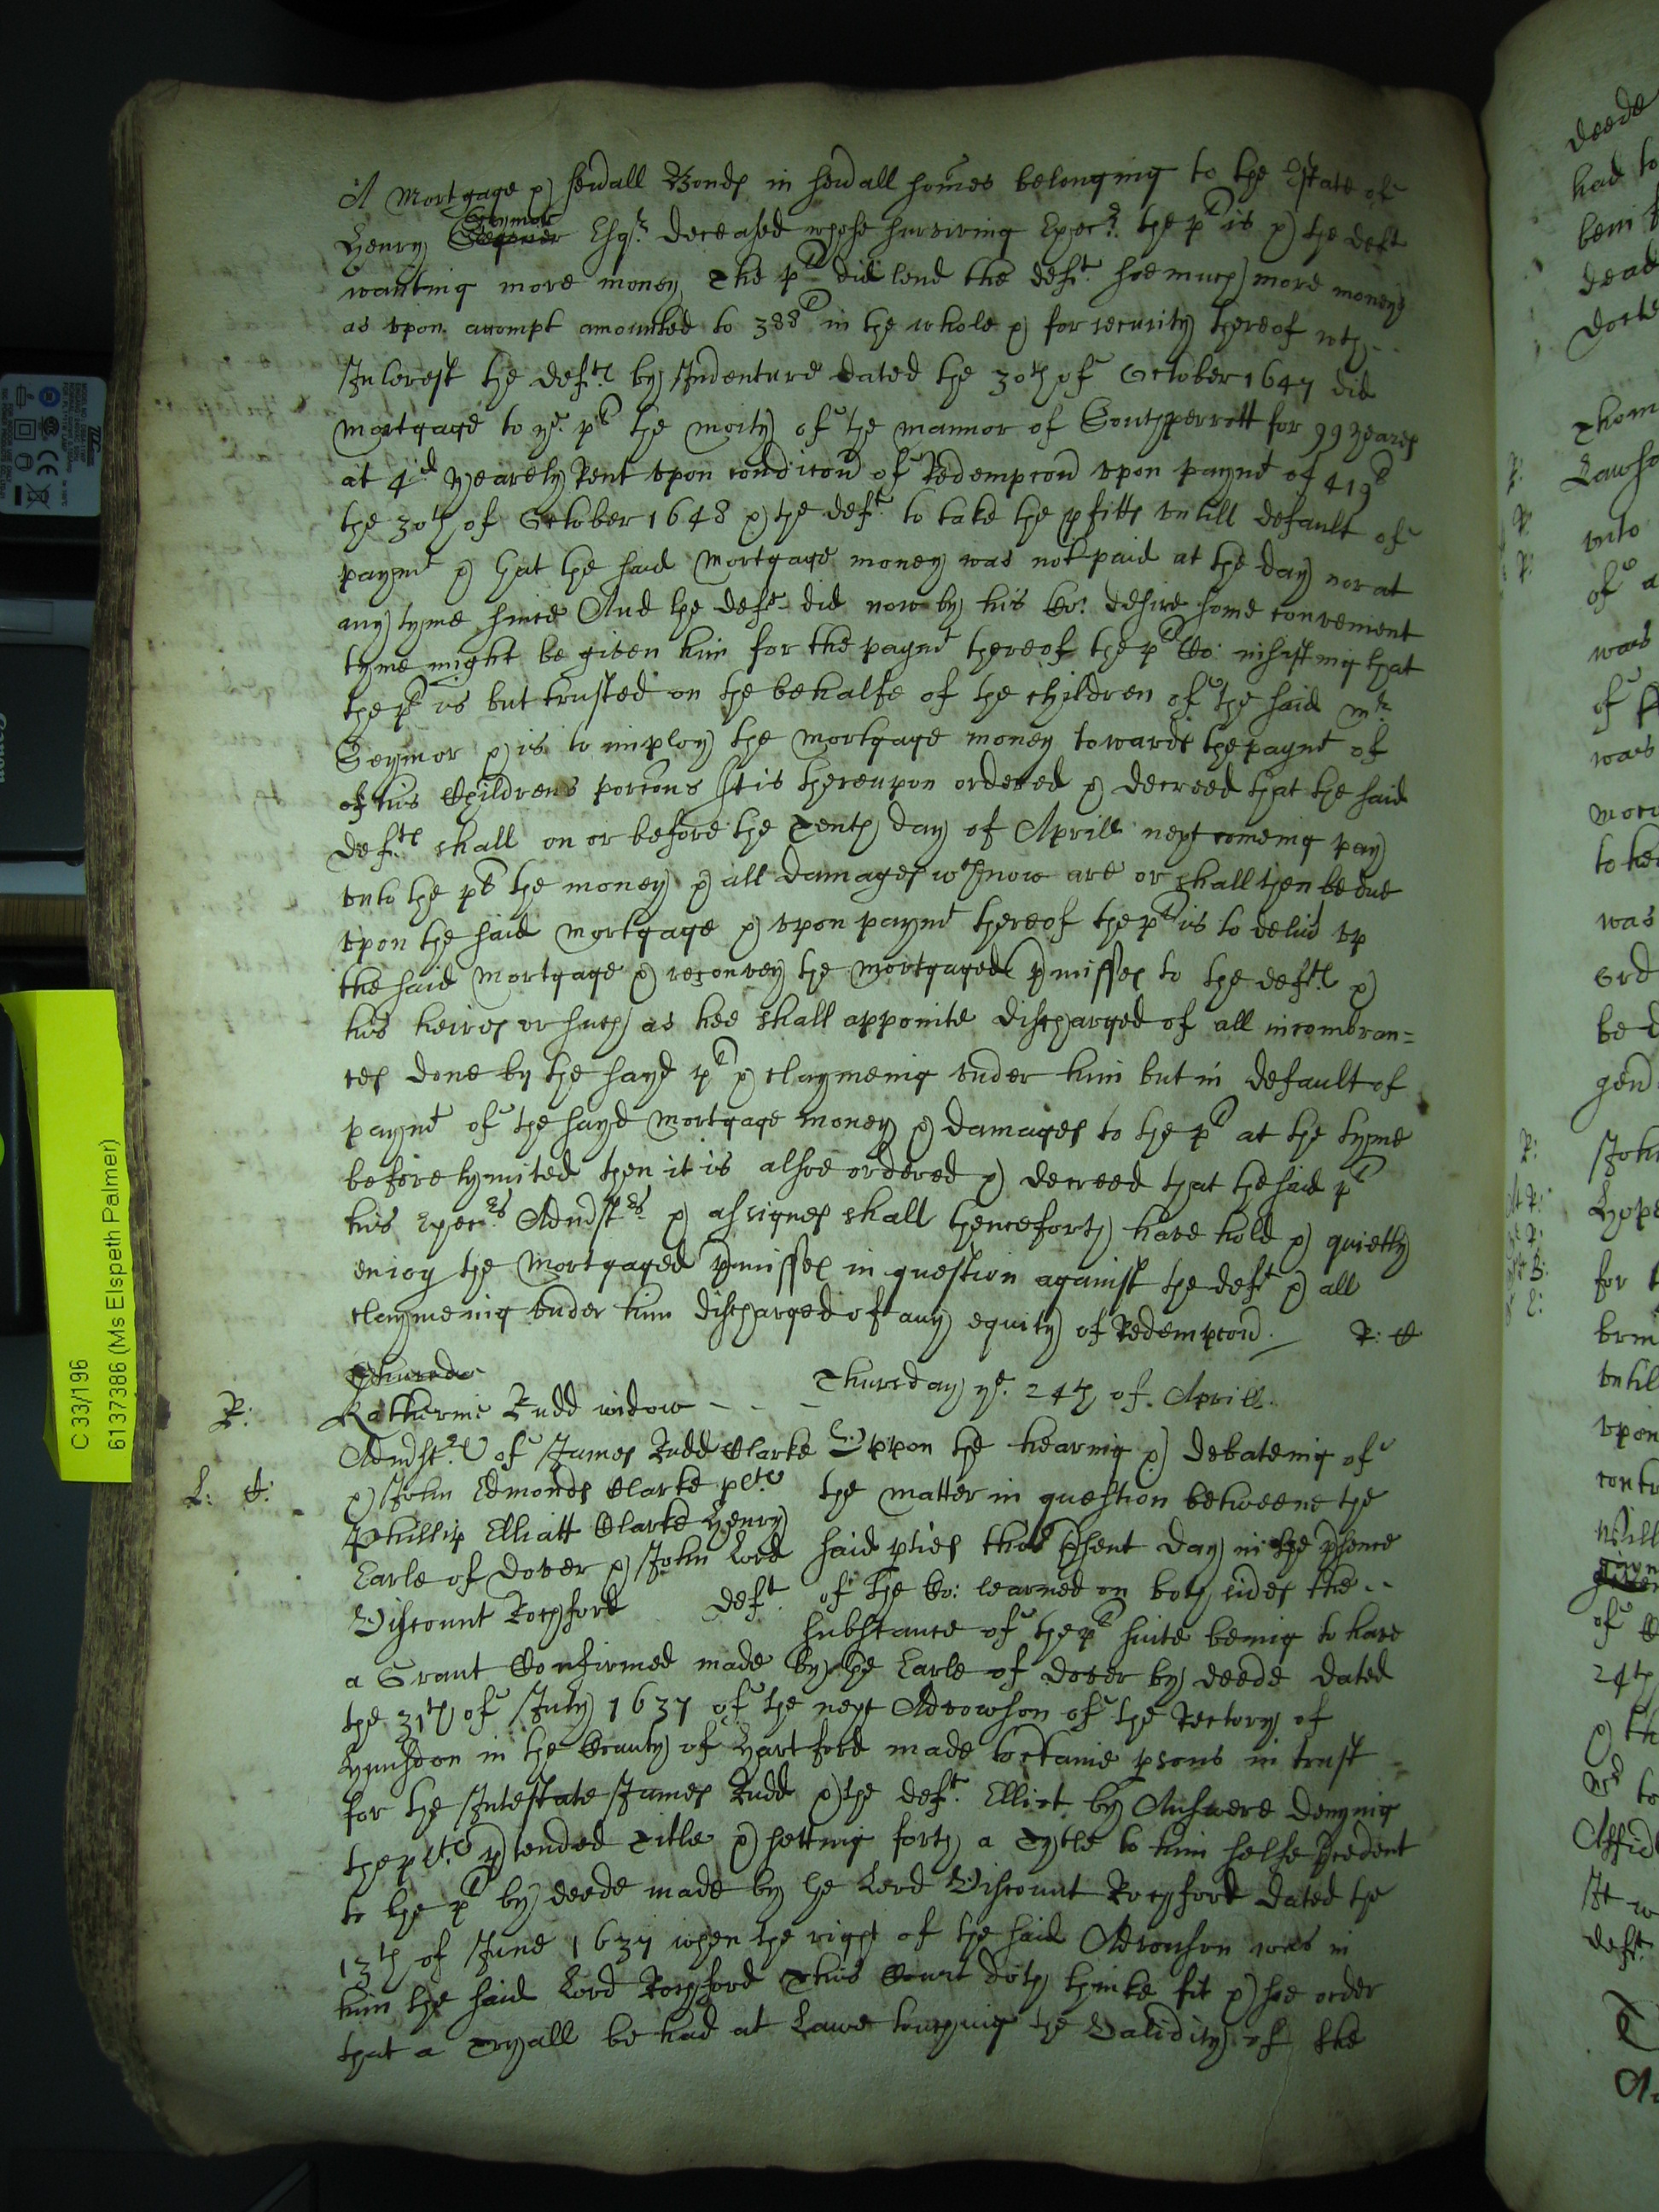 A Mortgage & sewall Bonds in sewall somes belonging to the Estate of
Henry Seymor Esqr. deceased whose surviving Execr. the plt is & the deft
wanting more money The plt did lend the deft. soe much more moneys
as vpon accompt amounted to 388l in the whole & for security thereof wth
Interest the defte. by Indenture dated the 30th of October 1647 did
mortgage to ye. plt the moity of the mannor of Southperrott for 99 yeares
at 4d yearely Rent vpon condicon of Redempcon vpon paymt of 419l
the 30th of October 1648 & the deft. to take the pfitts vntill default of
paymt & that the said mortgage money was not paid at the day nor at
any tyme since And the deft. did now by his Co: desire some convenient
tyme might be given him for the paymt thereof the plt Co: insisting that
the plt is but trusted on the behalfe of the children of the said mr.
Seymor & is to imploy the mortgage money towards the paymt of
of his Childrens porcons It is thereupon ordered & decreed that the said
defte. shall on or before the Tenth day of Aprill next comeing pay
vnto the plt the money & all damages wch now are or shall then be due
vpon the said mortgage & vpon paymt thereof the plt is to deliu vp
the said mortgage & reconvey the mortgaged pmisses to the defte. &
his heires or such as hee shall appointe discharged of all incombran=
ces done by the sayd plt & claymeing vnder him but in default of
paymt of the sayd mortgage money & damages to the plt at the tyme
before lymited then it is alsoe ordered & decreed that the said plt
his Execrs. Admstrs. & assignes shall henceforth have hold & quietly
enioy the mortgaged pmisses in question against the deft & all
claymeing vnder him discharged of any equity of Redempcon. R: C
Thursda
Thursday ye. 24th of Aprill.
R: Katherine Rudd widow
Admstr. of James Rudd Clarke Vppon the hearing & debateing of
L: E: & John Edmonds Clarke plts the matter in question betweene the
Phillip Elliatt Clarke Henry said pties this psent day in the psence
Earle of Dover & John Lord
Viscount Rochford deft. of the Co: learned on both sides the
substance of the plt suite being to have
a Grant Confirmed made by the Earle of Dover by deede dated
the 31th of July 1637 of the next Advowson of the Rectory of
Hunsdon in the County of Hartford made to ctaine psons in trust
for the Intestate James Rudd & the deft. Elliot by Answere denying
the plts ptended Title & setting forth a Tytle to him selfe pcedent
to the plt by deede made by the Lord Viscount Rochford dated the
13th of June 1637 when the right of the said Advowson was in
him the said Lord Rochford This Court doth thinke fit & soe order
that a Tryall be had at Lawe touching the Validity of the
C 33/196
61373786 (Ms Elspeth Palmer)
Canon